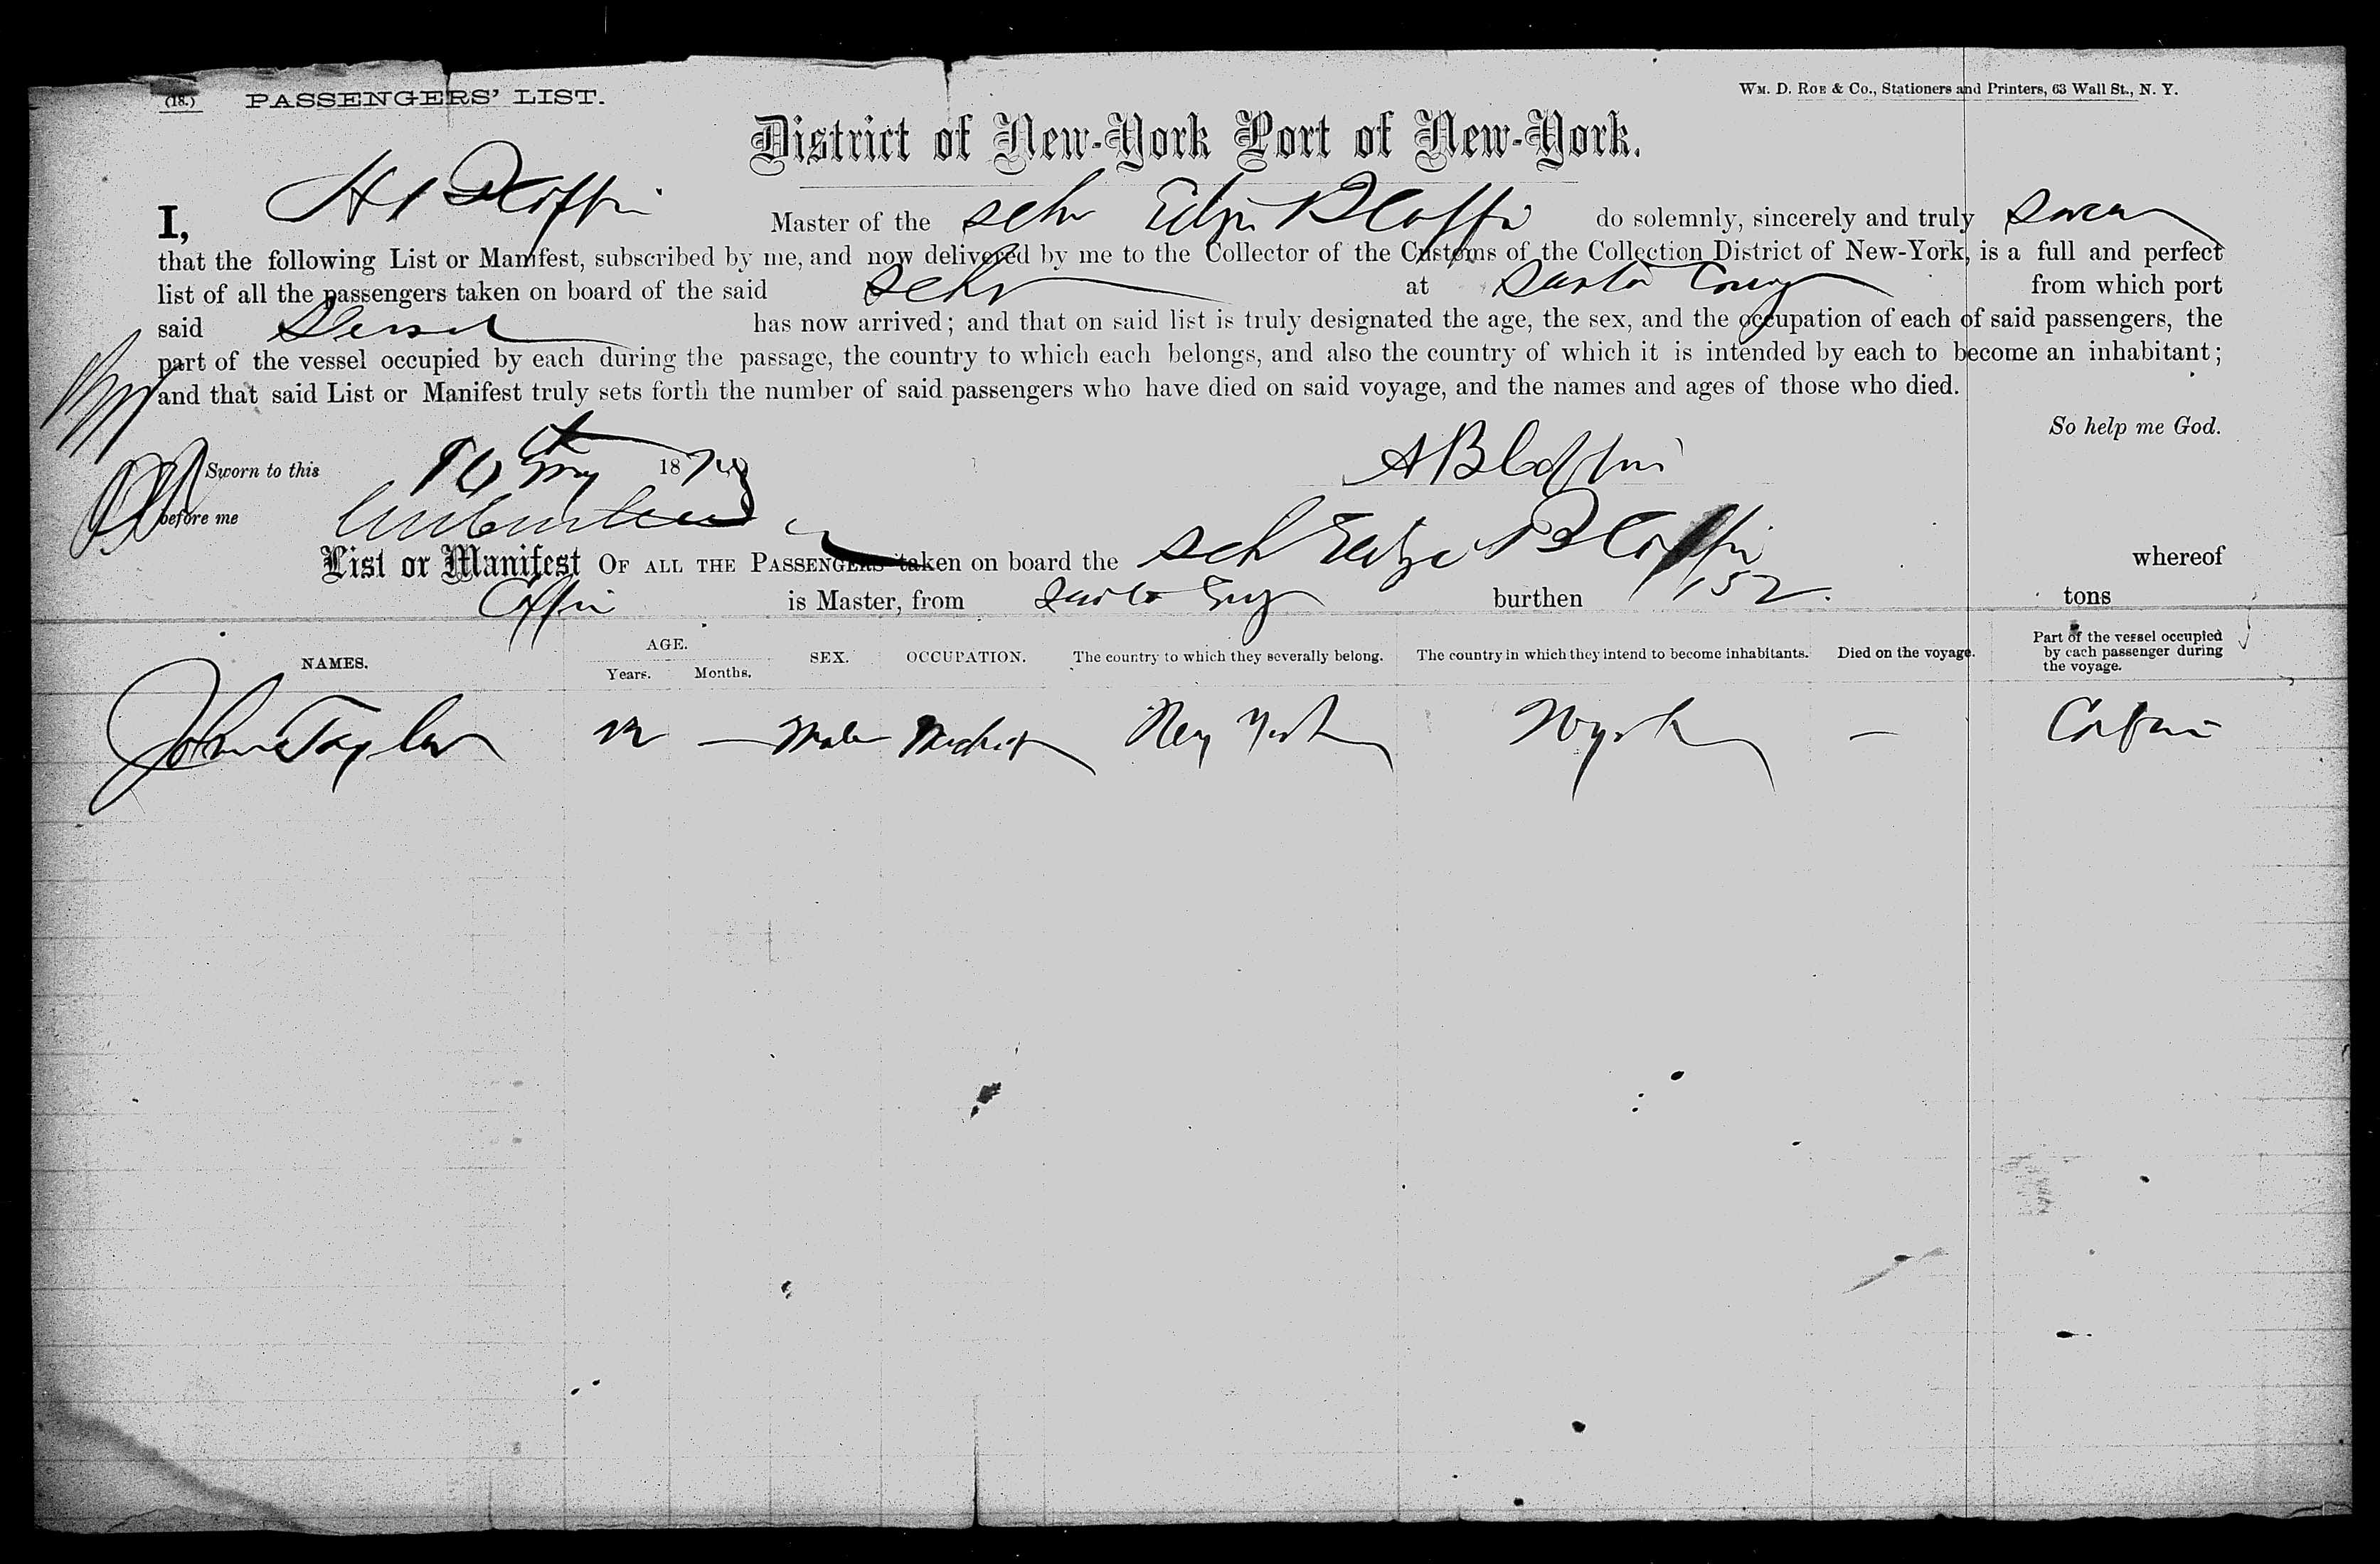 (18.) PASSENGERS' LIST.
Wm. D. Roe & Co., Stationers and Printers, 63 Wall St., N. Y.
District of New-York Port of New-York.
I, Coffin Master of the Schr B Coffin do solemnly, sincerely and truly swear
that the following List or Manifest, subscribed by me, and now delivered by me to the Collector of the Customs of the Collection District of New-York, is a full and perfect
list of all the passengers taken on board of the said Schr at Santa Cruz from which port
said Vessel has now arrived; and that on said list is truly designated the age, the sex, and the occupation of each of said passengers, the
part of the vessel occupied by each during the passage, the country to which each belongs, and also the country of which it is intended by each to become an inhabitant;
and that said List or Manifest truly sets forth the number of said passengers who have died on said voyage, and the names and ages of those who died.
So help me God.
Sworn to this 18
A B Coffin
before me
List or Manifest OF ALL THE PASSENGERS taken on board the Sch B Coffin whereof
Coffin is Master, from Santa Cruz burthen 152 tons
NAMES. AGE. Years. Months. SEX. OCCUPATION. The country to which they severally belong. The country in which they intend to become inhabitants. Died on the voyage. Part of the vessel occupied by each passenger during the voyage.
John Taylor — Male New York N York — Cabin